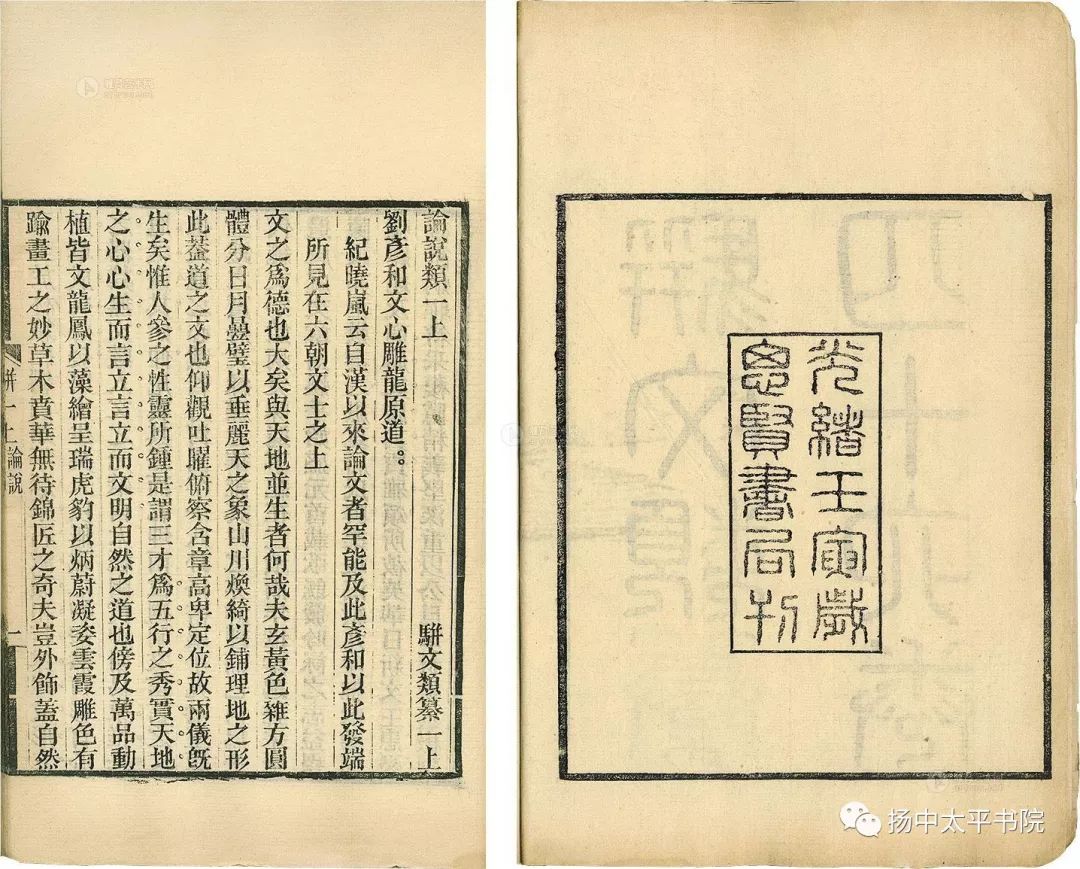 論說類一上 駢文類纂一上
劉彥和文心雕龍原道。
紀曉嵐云自漢以來論文者罕能及此彥和以此發端
所見在六朝文士之上
文之爲德也大矣與天地並生者何哉夫玄黃色雜方圓
體分日月曡璧以垂麗天之象山川煥綺以鋪理地之形
此葢道之文也仰觀吐曜俯察含章高卑定位故兩儀旣
生矣惟人參之性靈所鍾是謂三才爲五行之秀實天地
之心心生而言立言立而文明自然之道也傍及萬品動
植皆文龍鳳以藻繪呈瑞虎豹以炳蔚凝姿雲霞雕色有
踰畫工之妙草木賁華無待錦匠之奇夫豈外飾蓋自然
駢一上論說
一
光緒壬寅歲
思賢書局刊
扬中太平书院